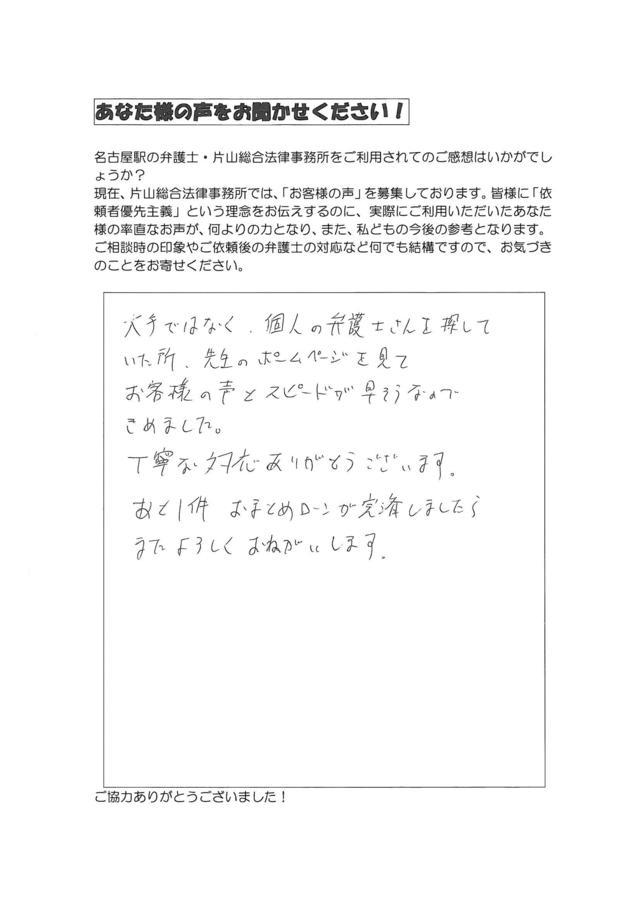 あなた様の声をお聞かせください！
名古屋駅の弁護士・片山総合法律事務所をご利用されてのご感想はいかがでし
ょうか？
現在、片山総合法律事務所では、「お客様の声」を募集しております。皆様に「依
頼者優先主義」という理念をお伝えするのに、実際にご利用いただいたあなた
様の率直なお声が、何よりの力となり、また、私どもの今後の参考となります。
ご相談時の印象やご依頼後の弁護士の対応など何でも結構ですので、お気づき
のことをお寄せください。
大手ではなく、個人の弁護士さんを探して
いた所、先生のホームページを見て
お客様の声とスピードが早そうなので
きめました。
丁寧な対応ありがとうございます。
あと1件 おまとめローンが完済しましたら
またよろしくおねがいします。
ご協力ありがとうございました！